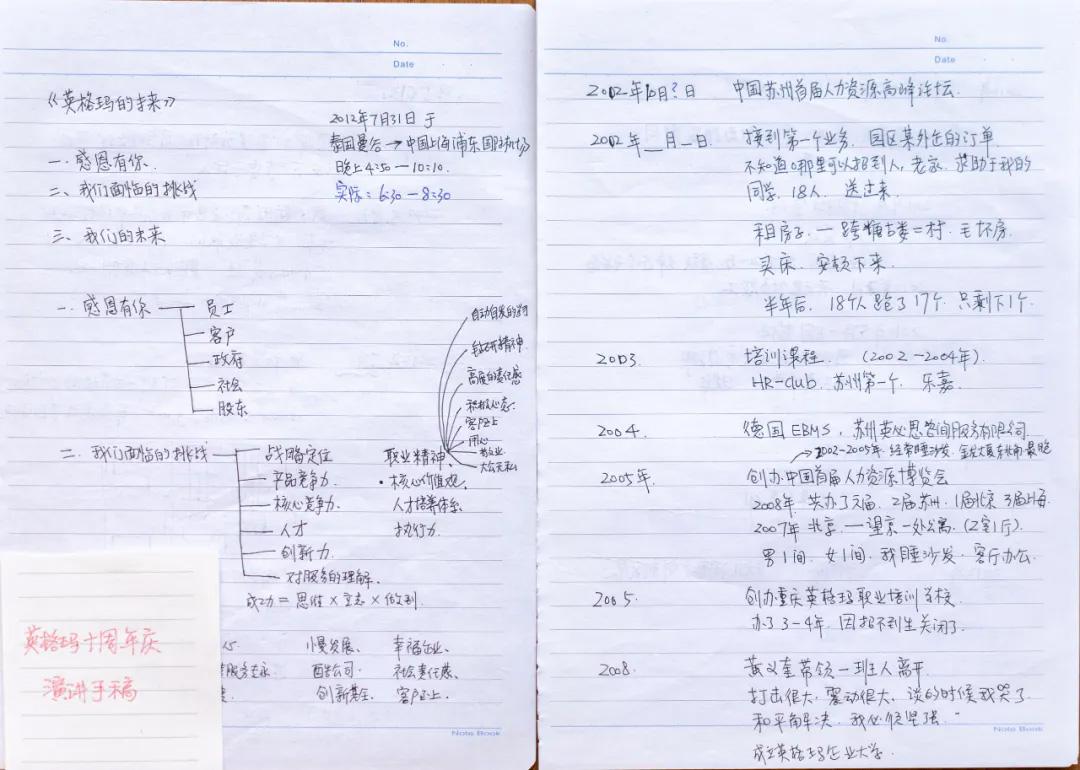 No.
Date
《英格玛的未来》
2012年7月31日 于
泰国曼谷→中国上海浦东国际机场
晚上4:50—10:10.
实际:6:30—8:30
一. 感恩有你.
二、我们面临的挑战
三、我们的未来
一. 感恩有你 员工
客户
政府
社会
股东
自动自发的
钻研精神.
高度的责任感
积极心态.
客户至上
用心
大公无私
二、我们面临的挑战 战略定位 职业精神、
产品竞争力. ·核心价值观、
核心竞争力. 人才培养体系、
人才 执行力.
创新力.
对服务的理解.
成功=思维×立志×做到.
慢发展、 幸福企业、
公司、 社会责任感、
创新基金、 客户至上、
英格玛十周年庆
演讲手稿
Note Book
No.
Date
2002年10月?日 中国苏州首届人力资源高峰论坛.
2002年__月__日. 接到第一个业务. 园区某外企的订单.
不知道哪里可以招到人, 老家. 求助于我的
同学. 18人. 送过来.
租房子. — 跨塘古娄二村. 毛坯房.
买床. 安顿下来.
半年后. 18个人跑了17个. 只剩下1个.
2003. 培训课程. (2002~2004年).
HR-club. 苏州第一个. 乐嘉.
2004. 德国EBMS. 苏州英必思咨询服务有限公司
2002-2005年. 经常睡沙发.
2005年. 创办中国首届人力资源博览会
2008年 共办了六届. 2届苏州. 1届北京 3届上海.
2007年 北京. — 望京一处公寓. (2室1厅).
男1间. 女1间. 我睡沙发. 客厅办公.
2005. 创办重庆英格玛职业培训学校.
办了3-4年. 因招不到生关闭了.
2008. 黄义奎带领一班人离开.
打击很大. 震动很大. 谈的时候我哭了.
和平解决. 我必须坚强.
成立英格玛企业大学.
Note Book